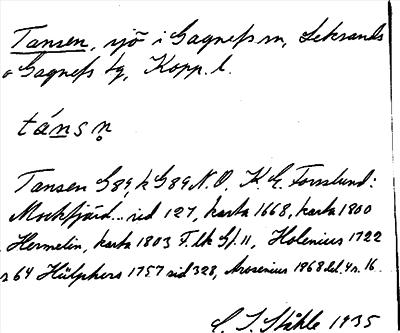 Tansen, sjö i Gagnefs sn, Leksands
o Gagnefs tg, Kopp. l.
tánsn̥
Tansen G89, k G89 N.O, K. E. Forsslund:
Mockfjärd... sid 127, karta 1668, karta 1800
Hermelin, karta 1803 F. lk Gf. 11, Holenius 1722
s 64 Hülphers 1757 sid 328, Arosenius 1868 del. 4 s. 16.
C. I. Ståhle 1935